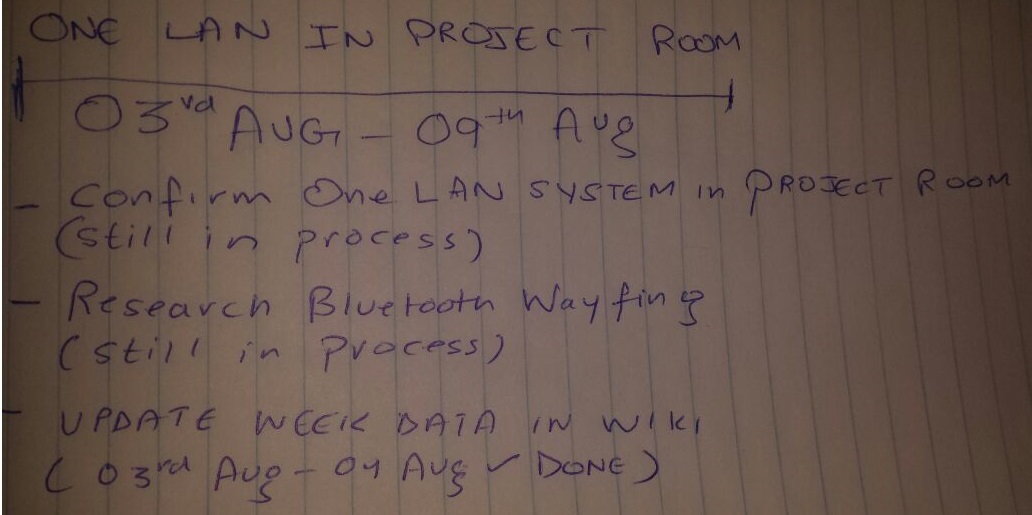 ONE LAN IN PROJECT ROOM
03rd AUG - 09th Aug
- Confirm One LAN SYSTEM in PROJECT ROOM
(Still in process)
- Research Bluetooth Wayfing
(Still in process)
- UPDATE WEEK DATA IN WIKI
(03rd Aug - 04 Aug ✓ DONE)